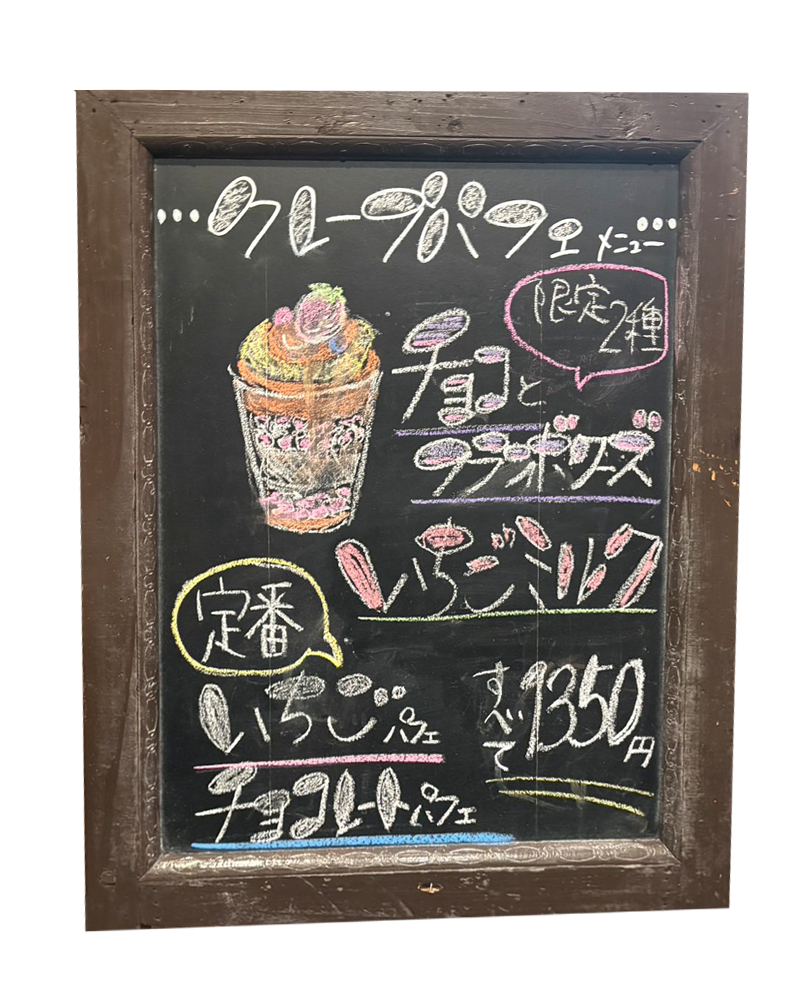 ...クレープパフェメニュー...
限定
2種
チョコと
フランボワーズ
いちごミルク
定番
いちごパフェ
チョコレートパフェ
すべて1350円